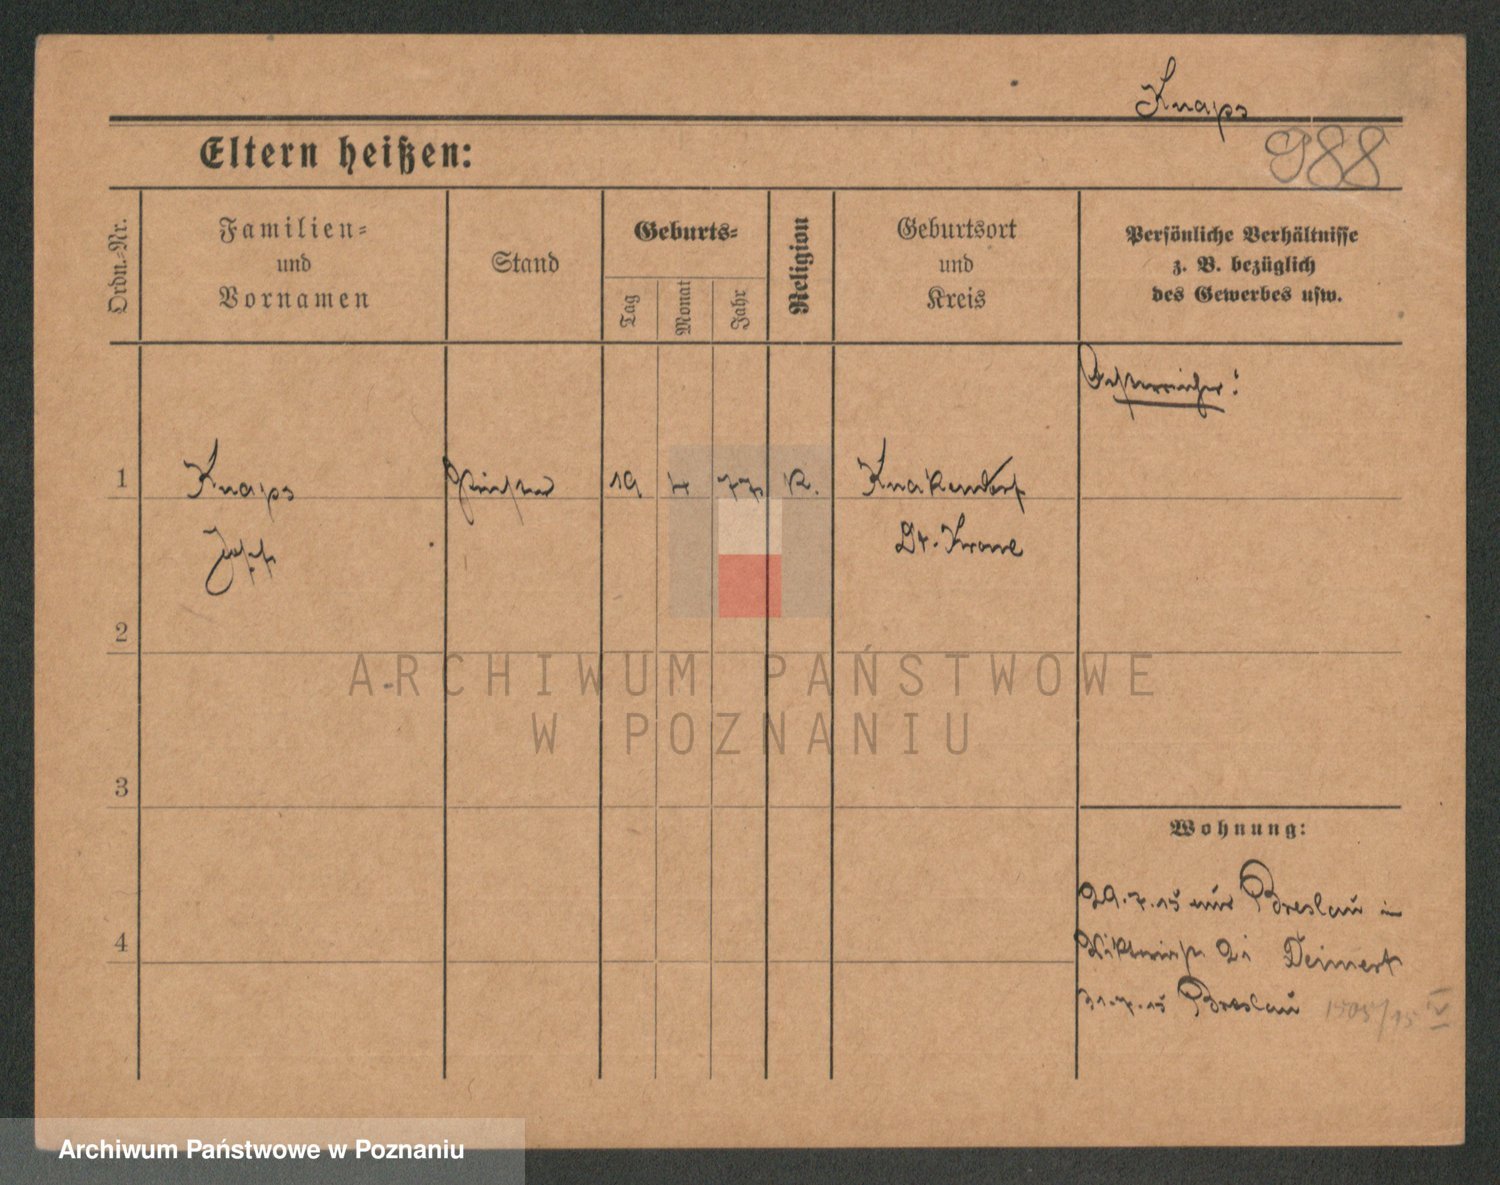 Knaps
988
Eltern heißen:
Ordn.-Nr.
Familien-
und
Vornamen
Stand
Geburts-
Tag
Monat
Jahr
Religion
Geburtsort
und
Kreis
Persönliche Verhältnisse
z. B. bezüglich
des Gewerbes usw.
Österreicher!
1 Knaps 19 4 77 K. Knakendorf
Josef Dt. Krone
2
3
4
Wohnung:
29.7.15 aus Breslau in
21 Deinert
31.7.15 Breslau 1505/15 VI
ARCHIWUM PAŃSTWOWE
W POZNANIU
Archiwum Państwowe w Poznaniu